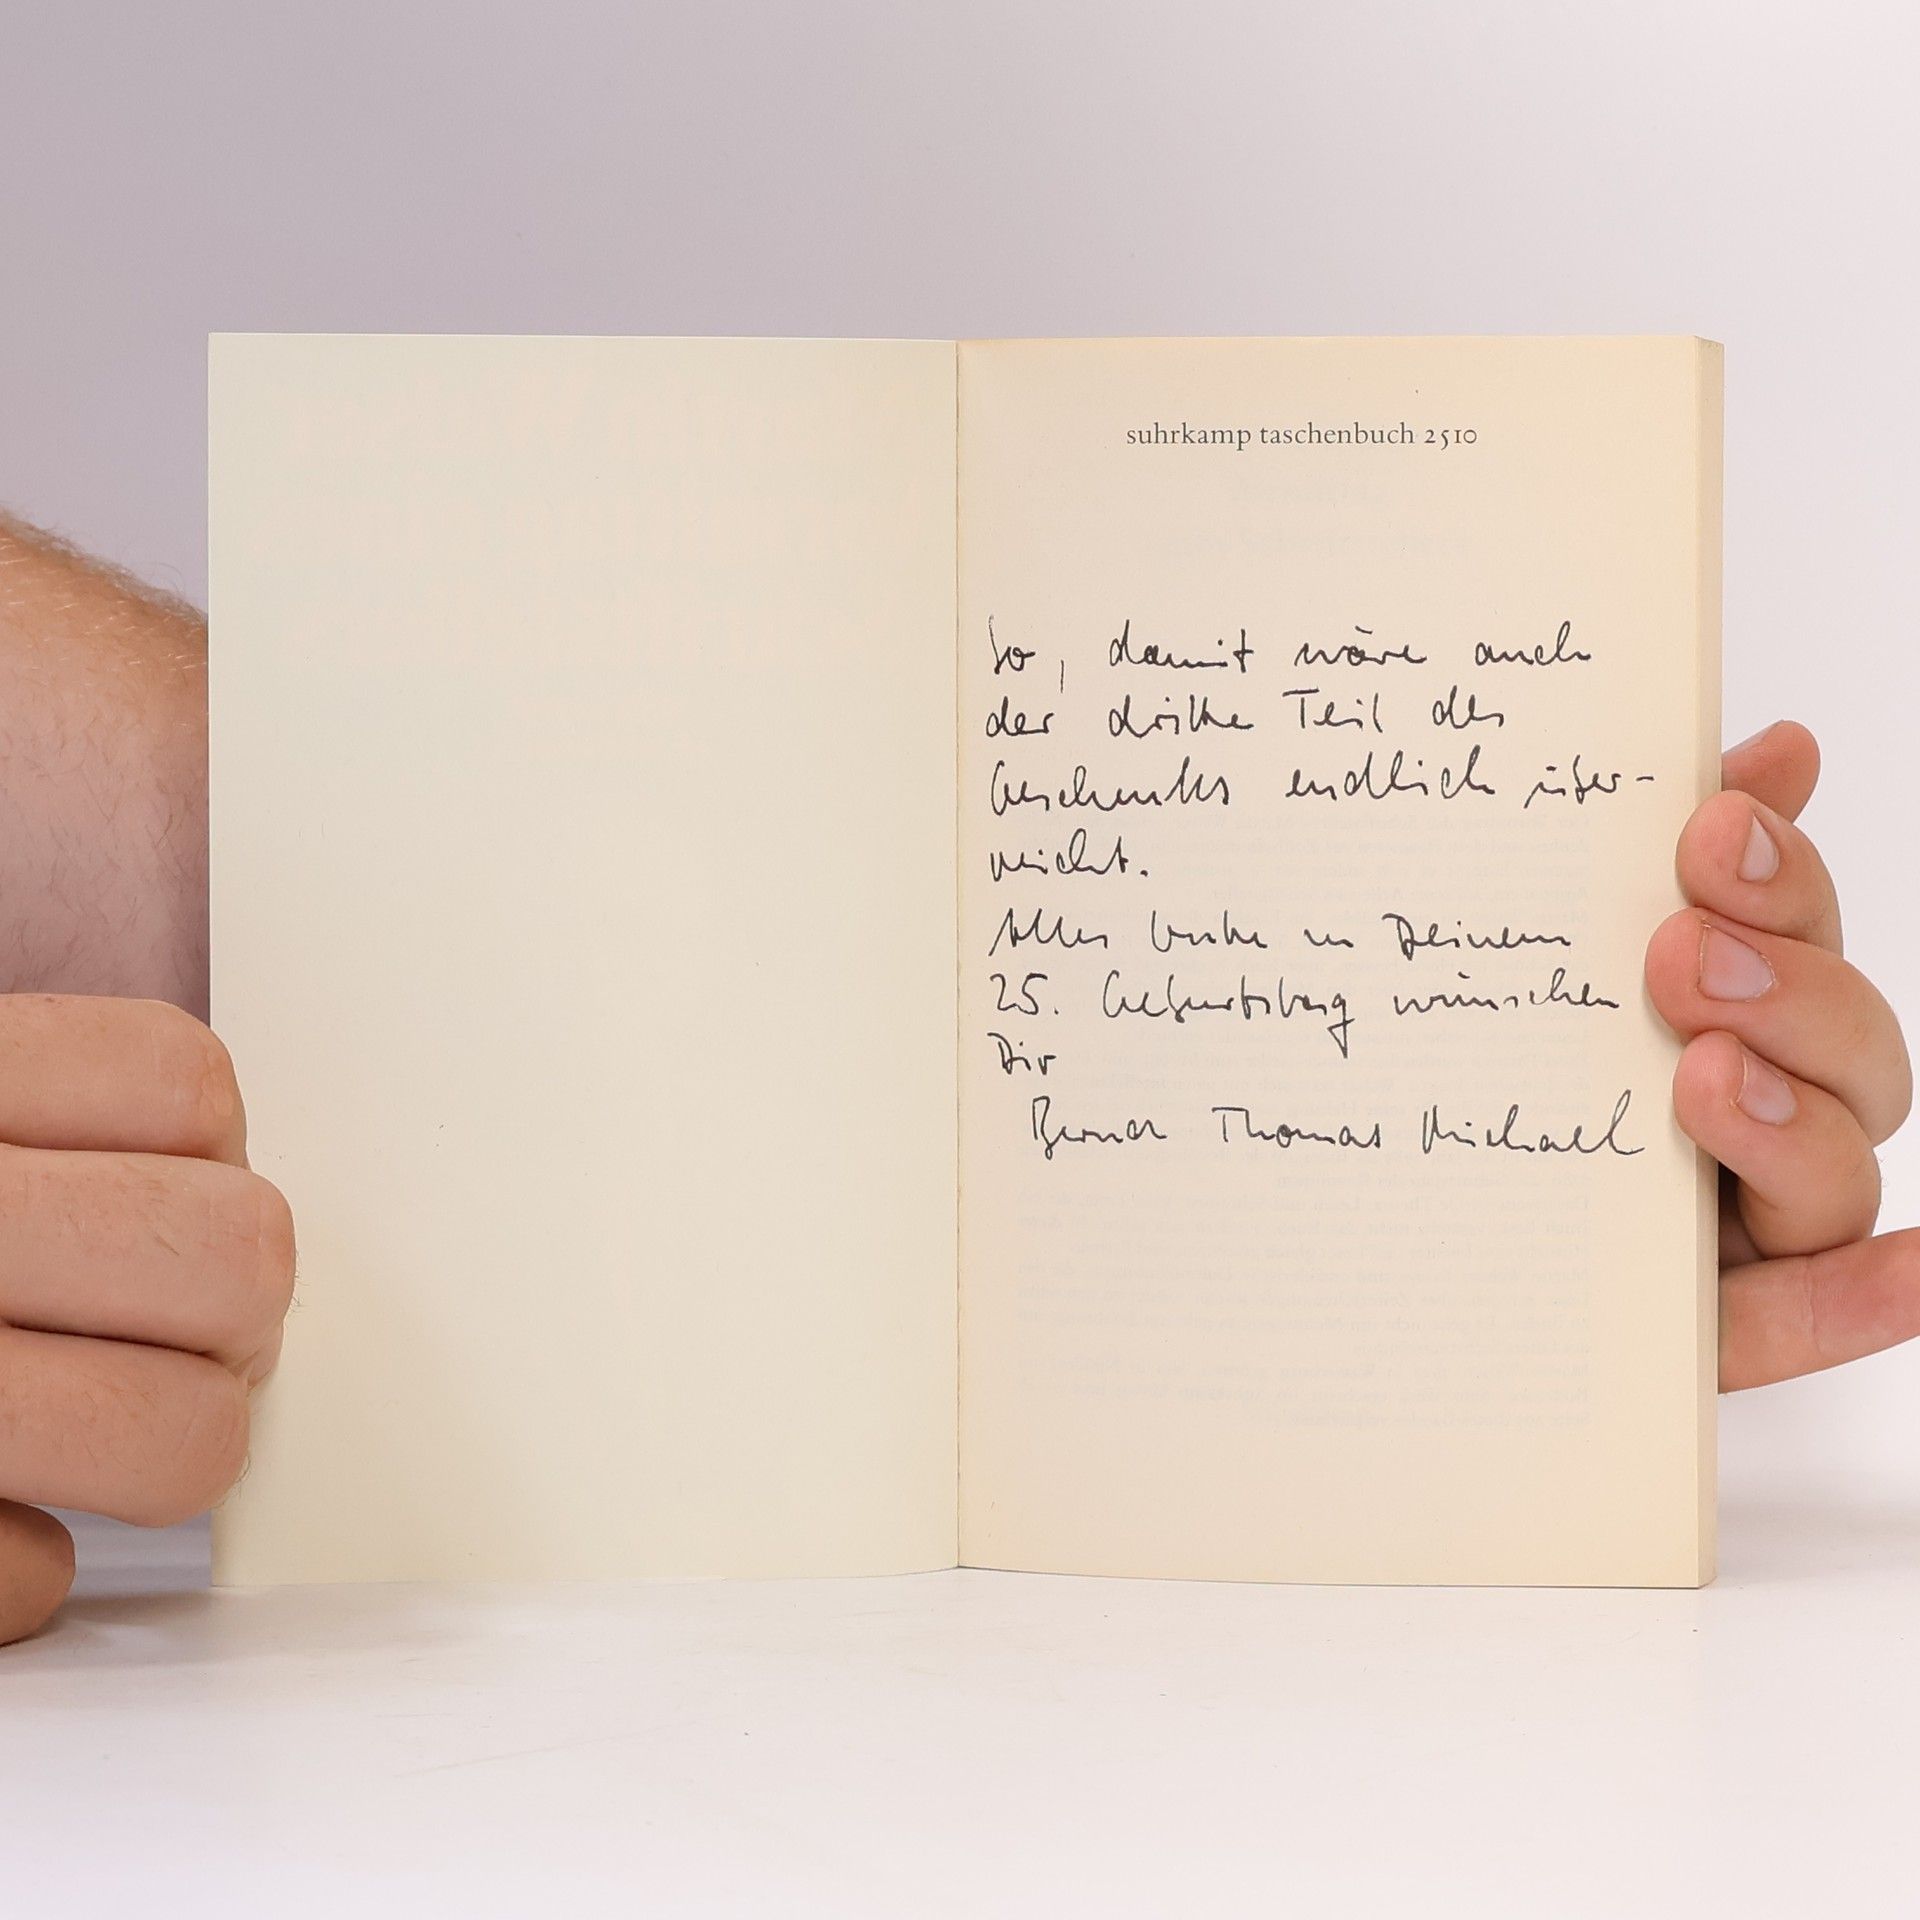 suhrkamp taschenbuch 2510
So, damit wäre auch
der dritte Teil des
Geschenks endlich über-
reicht.
Alles Gute zu Deinem
25. Geburtstag wünschen
Dir
Bernd Thomas Michael